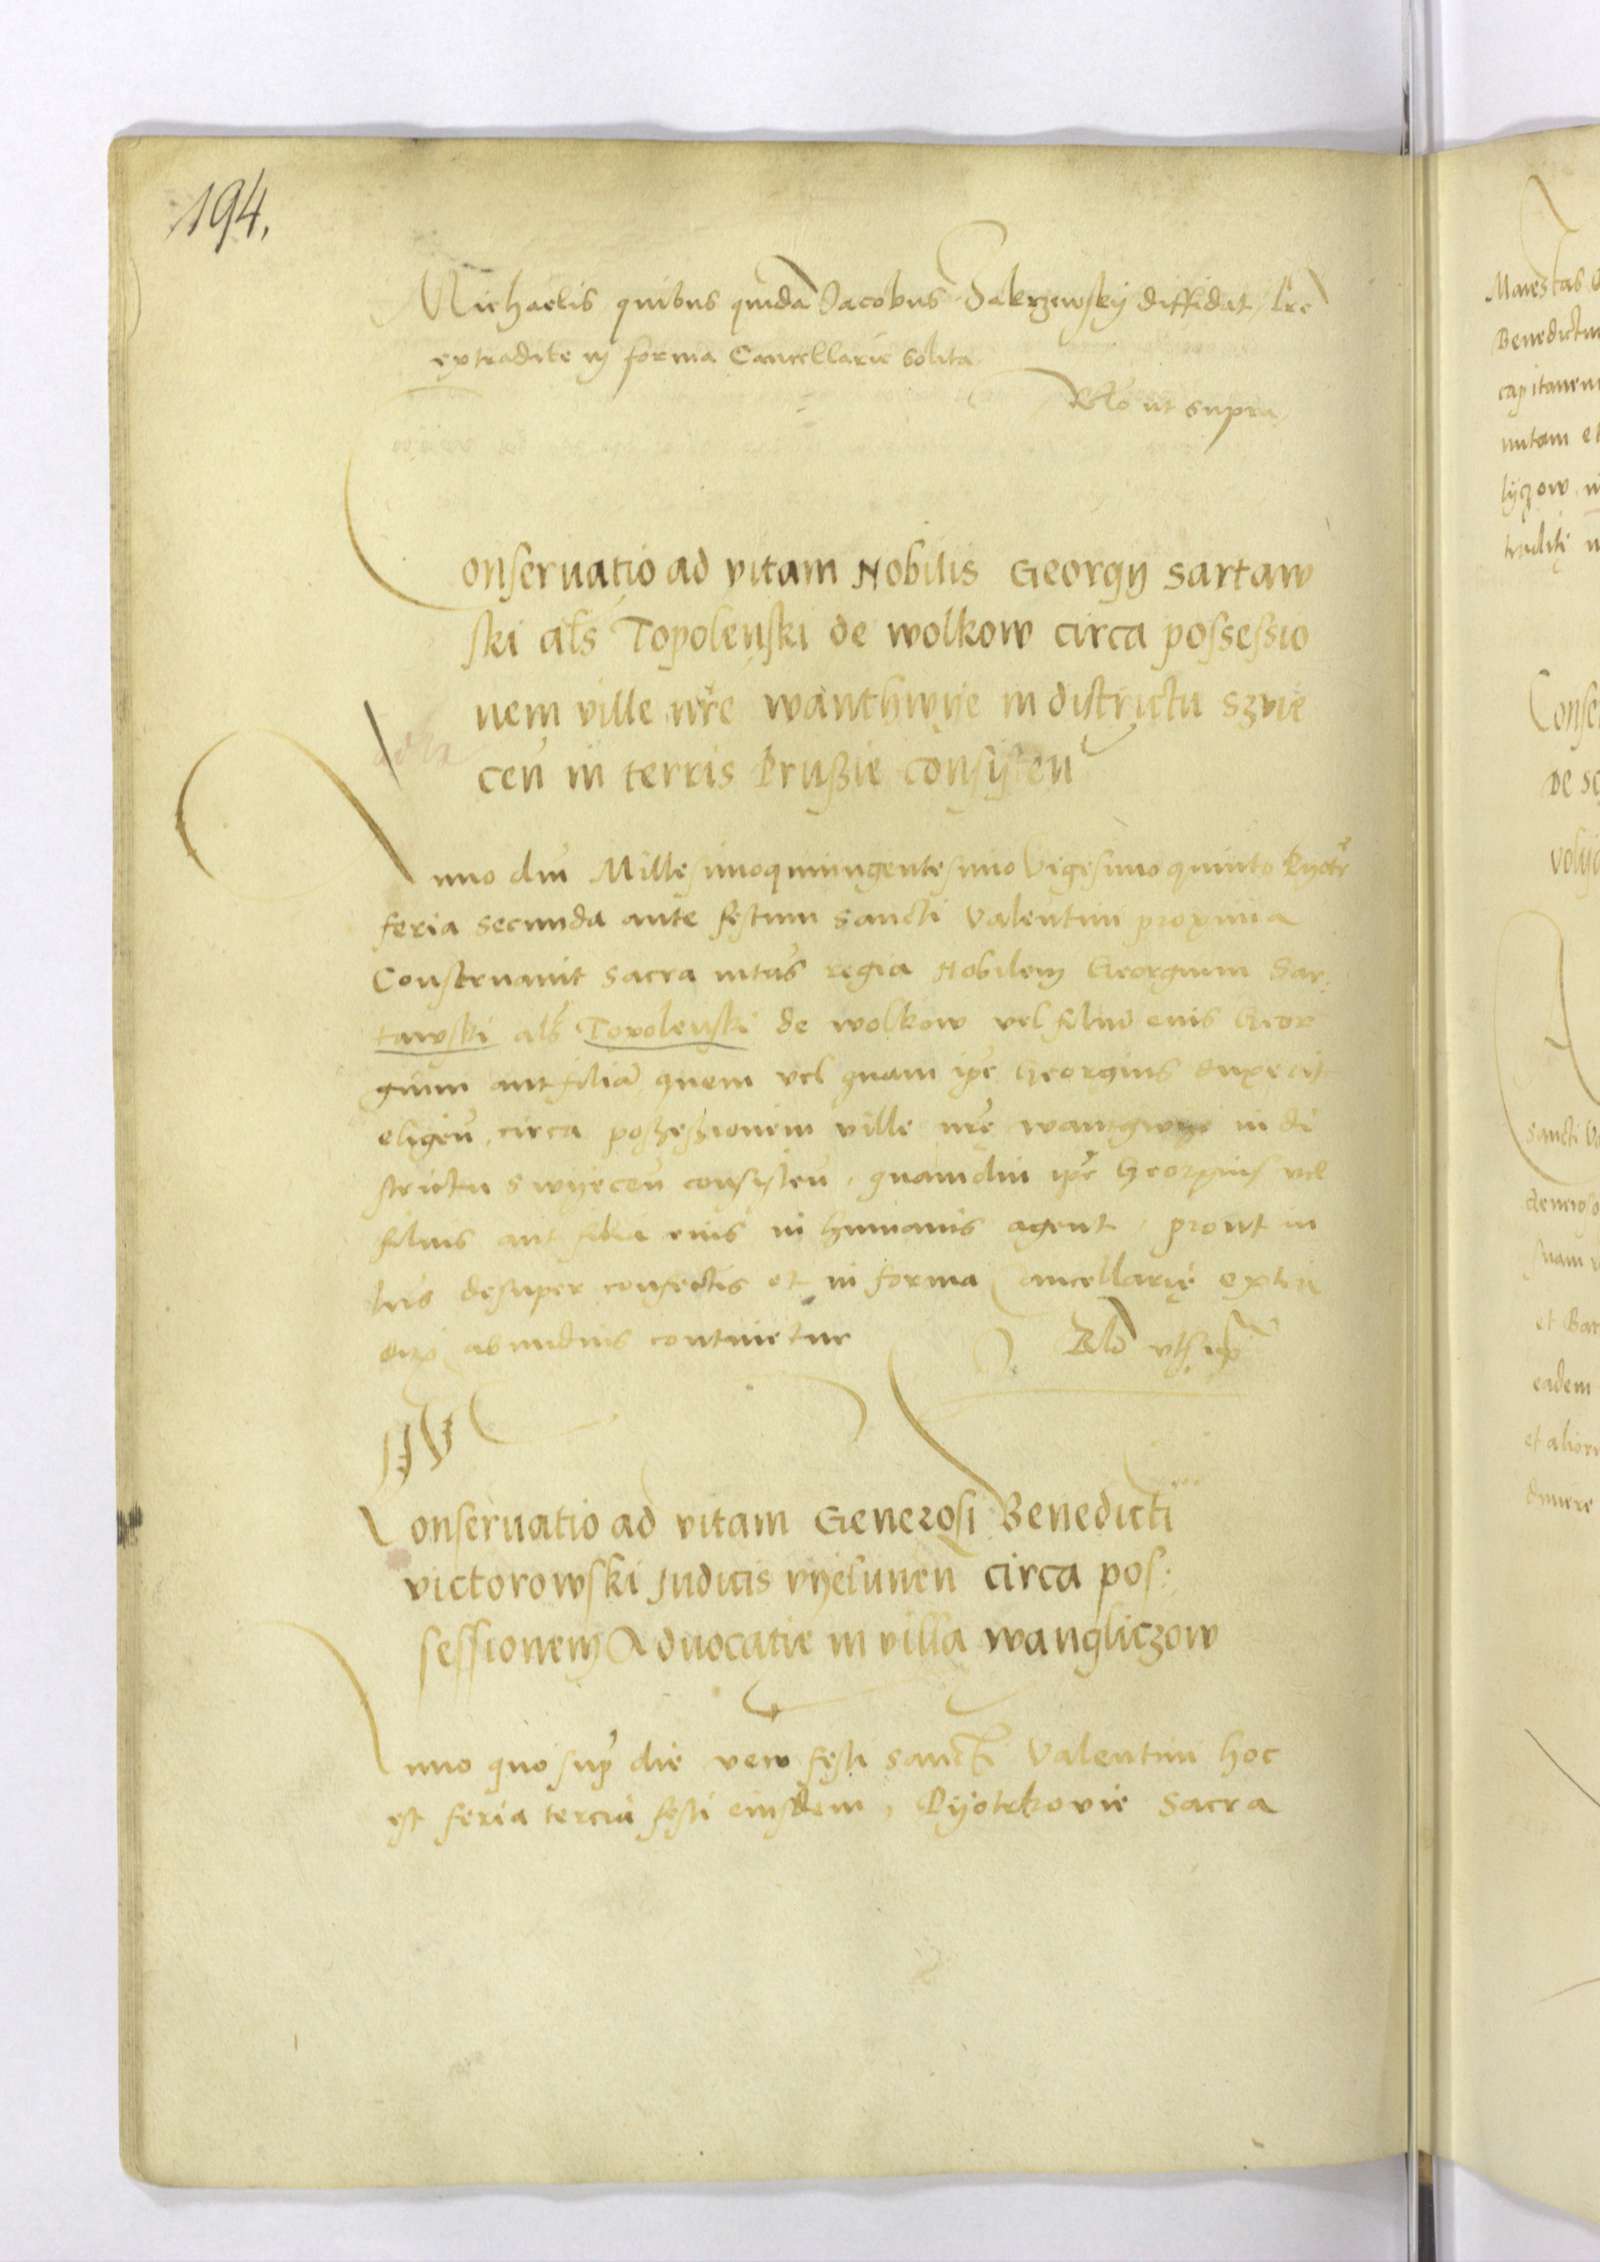 194.
Michaelis quibus quidā Jacobus Zakrzewsky diffidat, lre
extradite in forma Cancellarie solita
Rlo ut supra
Conservatio ad vitam Nobilis Georgij Sartaw
ski als Topolenski de wolkow circa possessio
nem ville nre wanthwyie in districtu szvie
cen in terris Prussie consisten
Anno dni Millesimoquingentesimo vigesimo quinto Pyotr
feria secunda ante festum sancti Valentini proxima
Conservavit sacra mtas regia Nobilem Georgium Sar:
tawski als Topolenski de wolkow vel filiū eius Geor
gium aut filiā quem vel quam ipe Georgius duxerit
eligen, circa possessionem ville nre in di
strictu swyecen consisten, quamdiu ipe Georgius vel
filius aut filia eius in humanis agent, prout in
lris desuper confectis et in forma Cancellarie extra
ditis abundius continetur
Rlo ut sup
Conservatio ad vitam Generosi Benedicti
victorowski Judicis vyelunen circa pos:
sessionem Advocatie in villa wangliczow
Anno quo sup die vero festi sancti Valentini hoc
est feria tercia festi eiusdem, Pyotrkovie Sacra
Maiestas
Benedictu
capitaneu
lyczow
Conser
de
Sancti
et Bar
eadem
et alior